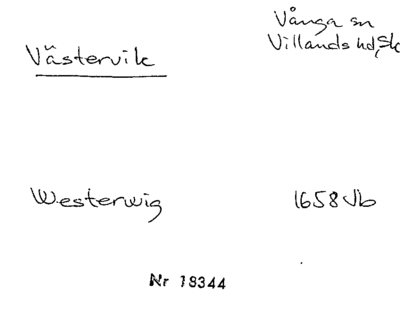 Vånga sn
Västervik Villands hd, Sk
Westerwig 1658 Jb
Nr 18344